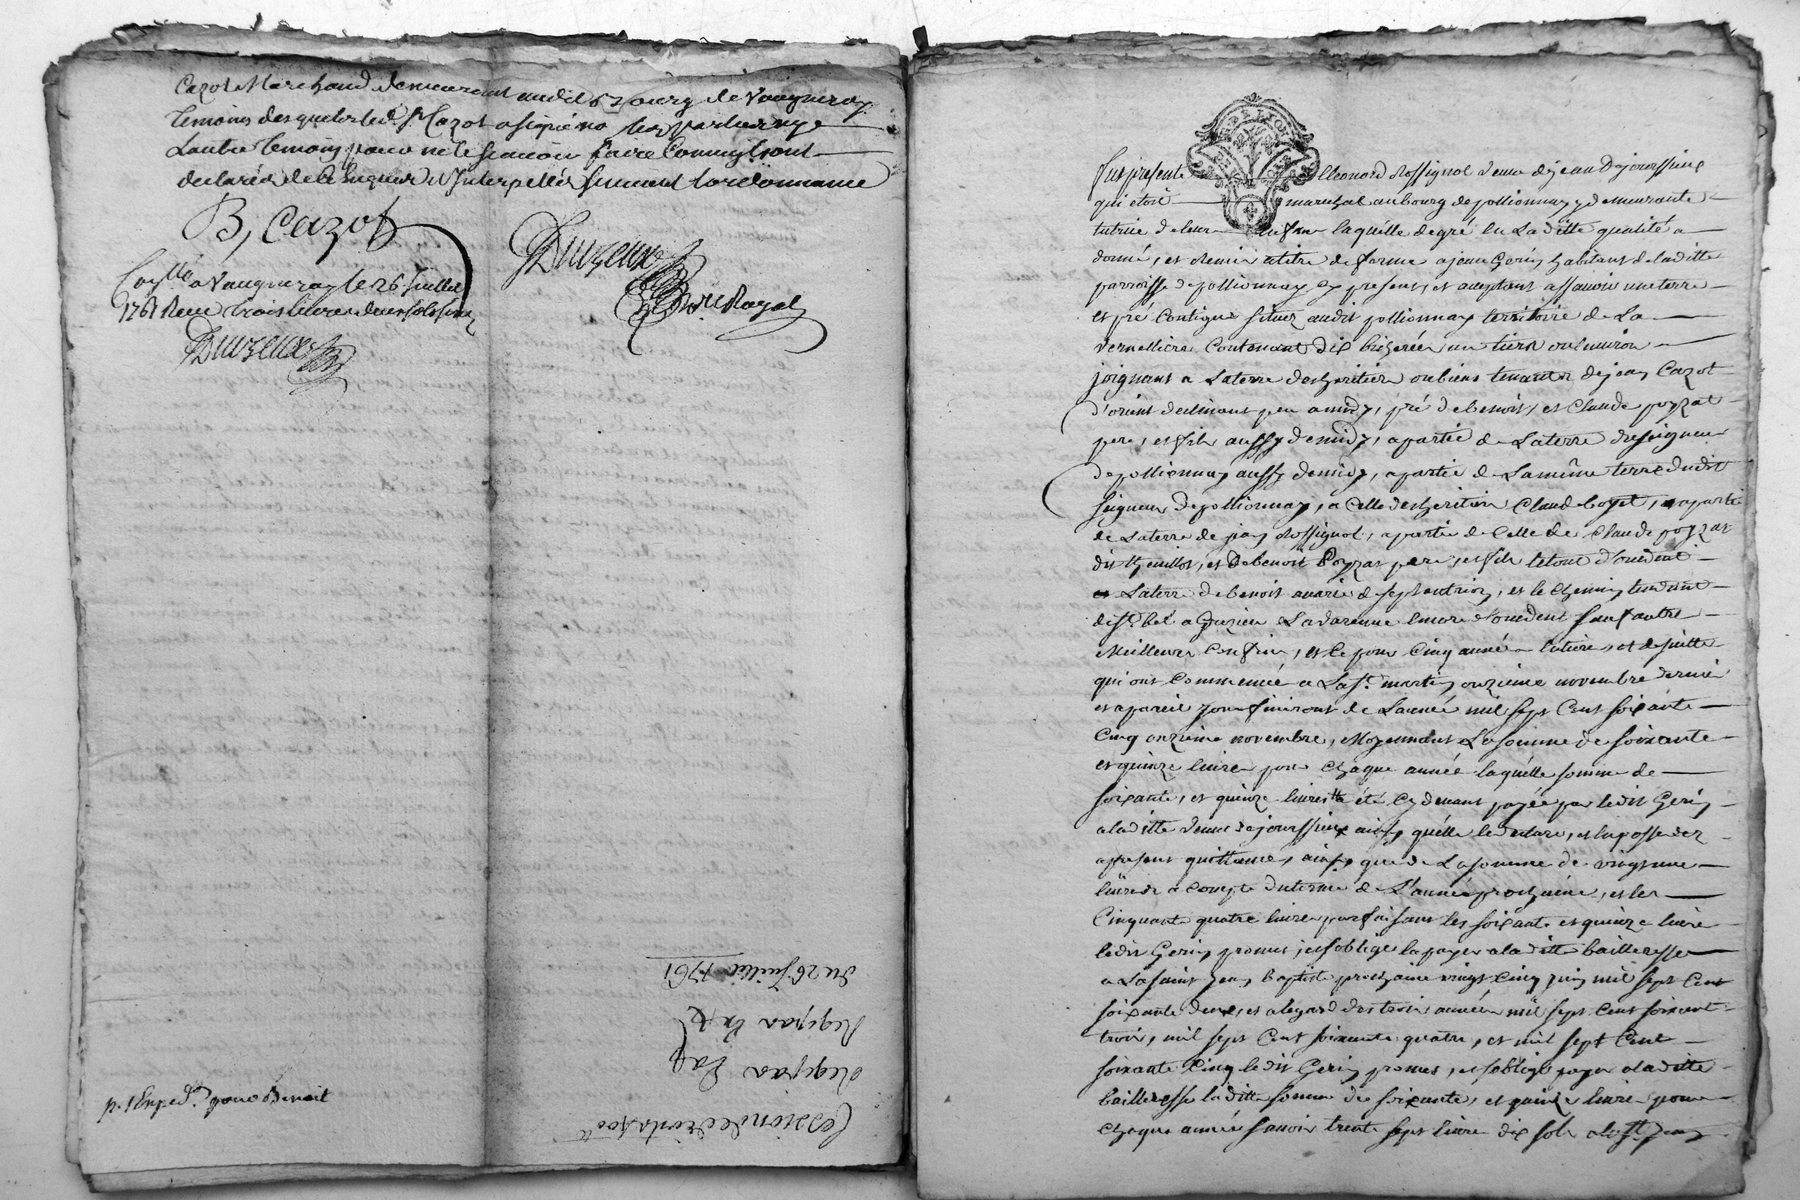 Cazot Marchand demeurant audit bourg de Vaugneray
temoins desquels led. Sr Cazot a signé no les parties nye
Lautre temoin pour ne le scavoir faire Comme ils ont
declarés de Ce Enquis et Interpellés suivant Lordonnance
B, Cazot
Duvzeux
No.re Royal
Con.llé a Vaugneray le 26 Juillet
1761 Recu trois livres
Duvzeux
p. 1 Exped.on pour Benoit
du 26 Juillet 1761
Cession de droits
Fut presente Eleonord Rossignol veuve de jean Dejourssieux
qui etoit marechal au bourg de pollionnay y demeurante
tutrice de leur Enfans laquelle de gré En Laditte qualité a
donné, et remis a titre de ferme a jean Gerin habitant de laditte
parroisse de pollionnay cy present, et acceptant assavoir une terre
et pré Contigus situez audit pollionnay territoire de La
vernelliere Contenant dix bicherées un tiers ou Environ
joignant a Laterre des heritiers ou biens tenants de jean Cazot
d'orient declinant peu a midy, pré de benoit, et Claude poyzat
pere, et fils aussy de midy, a partie de Laterre du seigneur
de pollionnay aussy de midy, a partie de La même terre dudit
seigneur de pollionnay, a Celle des heritiers Claud, a partie
de Laterre de jean Rossignol, a partie de Celle de Claude poyzat
dit, et de benoit Poyzat pere, et fils le tout d'occident
Laterre de benoit de septentrion, et le chemin tendant
de St. bel a Grezieu La varenne Encore d'occident sauf autres
Meilleurs Confins, et Ce pour Cinq années Entieres, et de suitte
qui ont Commencé a La St. martin onzieme novembre dernier
et a pareil jour finiront de Lannée mil sept Cent soixante
Cinq onzieme novembre, Moyennant La somme de soixante
et quinze livres pour chaque année laquelle somme de
soixante, et quinze livres a été Cy devant payée par ledit Gerin
a laditte veuve dejourssieux ainsy quelle le declare, et en passe
a present quittance, ainsy que de La somme de vingt une
livre a compte du terme de L'année prochaine, et les
Cinquante quatre livres parfaisant les soixante et quinze livres
ledit Gerin promet, et s'oblige les payer a laditte bailleresse
a La saint Jean Baptiste prochaine vingt Cinq juin mil sept Cent
soixante deux, et a legard des trois années mil sept Cent soixante
trois, mil sept Cent soixante quatre, et mil sept Cent
soixante Cinq ledit Gerin promet, et s'oblige payer a laditte
bailleresse laditte somme de soixante, et quinze livres pour
chaque année sauoir trente sept livres dix sols a la St. Jean